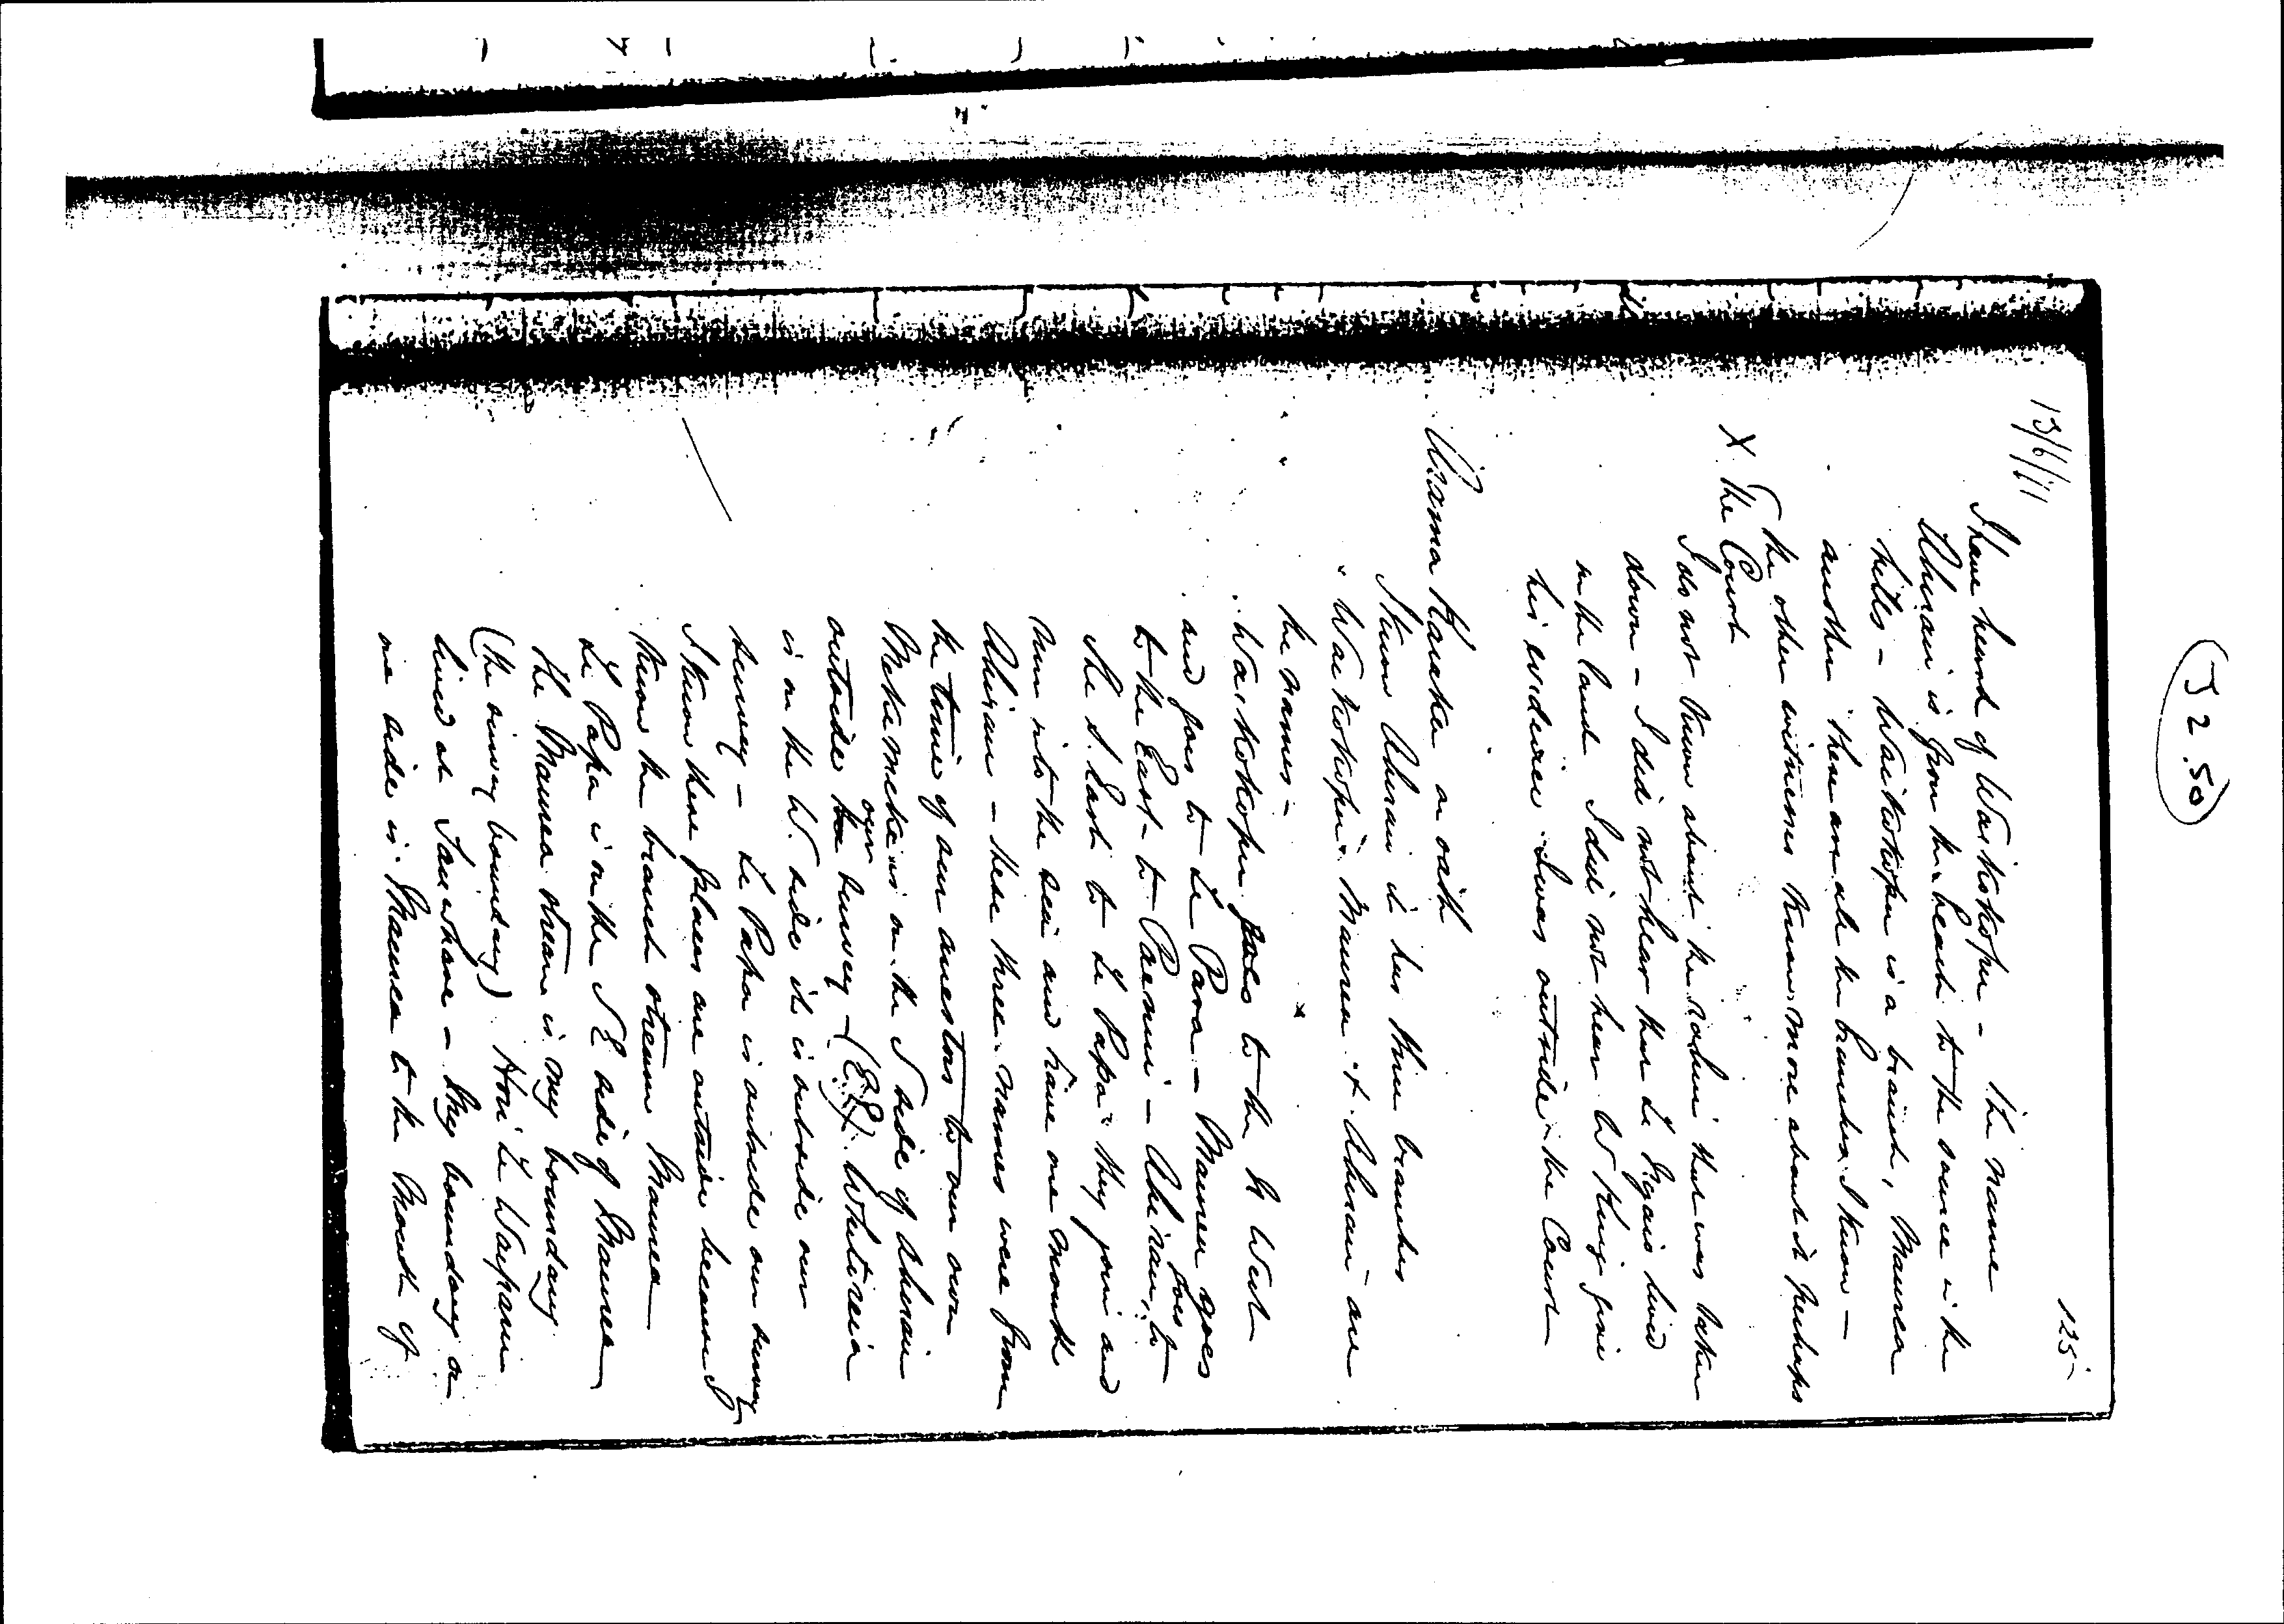 J2.50
125
13/6/71
I have heard of Waikokopu - The name
Ahirau is from the beach to the source in the
hills - Waikokopu is a branch, Maurea
another These are all the branches I know -
The other witnesses know more about it perhaps
X The Court
I do not know about the that was taken
down - I did not hear that Te lived
on the land I did not hear W King give
his evidence I was outside the Court
on oath
I know Ahirau it has three branches
Waikokopu Maurea & Ahirau are
the names -
Waikokopu goes to the N West
and goes to Te Para - Maurea goes
to the East to - Ahirau goes to
the S. East to Te Papa they join and
run into the sea and have one mouth
Ahirau - these three names were from
the time of our ancestors to our own
Mekemeke is on the S side of Ahirau
outside the our survey - (E.E).
is on the W. side it is outside our
survey - Te Papa is outside our survey
I know these places are outside because I
know the branch stream Maurea
Te Papa is on the S E side of Maurea
the Maurea stream is my boundary
(the survey boundary) Hori Te
lived at - My boundary on
one side is Maurea to the mouth of